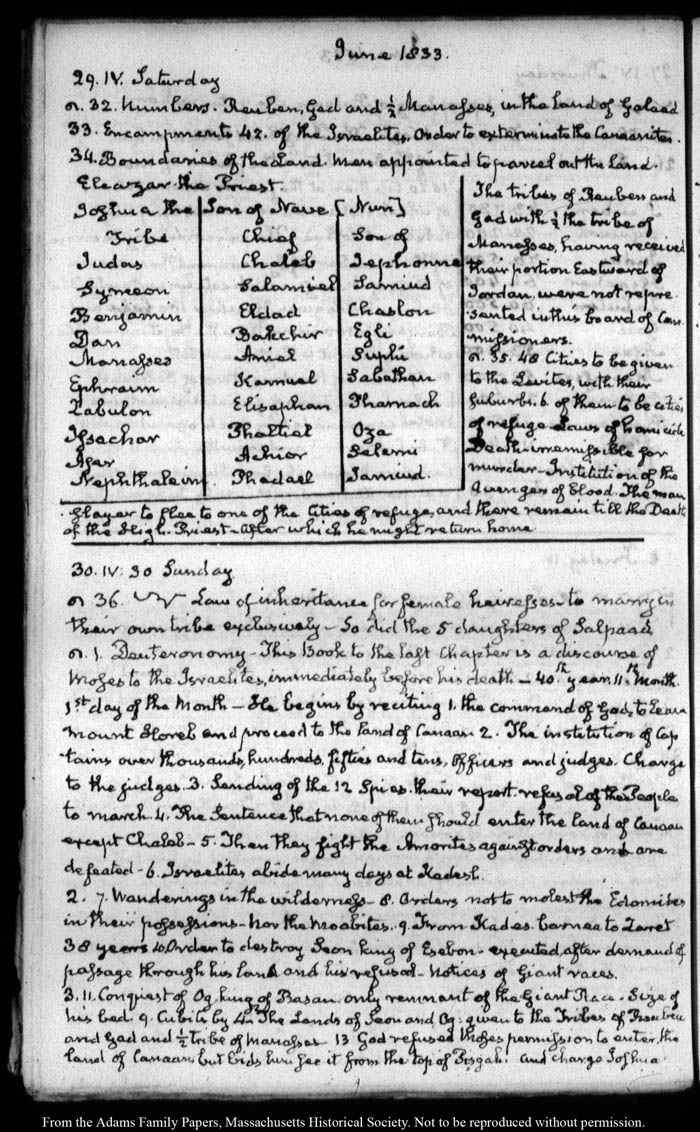 June 1833.
29. IV. Saturday
n. 32. Numbers. Reuben, Gad and ½ Manasses, in the Land of Galaad
33. Encampments 42. of the Israelites. Order to exterminate the Canaanites.
34. Boundaries of the Land. Men appointed to parcel out the Land.
Eleazar the Priest.
Joshua the Son of Nave [Nun]
Tribe Chief Son of
Judas Chaleb Jephonne
Symeon Salamiel Samiud
Benjamin Eldad Chaslon
Dan Bakchir Egli
Manasses Aniel Suphi
Ephraim Kamuel Sabathan
Zabulon Elisaphan Pharnach
Issachar Phaltiel Oza
Aser Achior Selemi
Nephthaleim Phadael Jamiud.
The tribes of Reuben and
Gad with ½ the tribe of
Manasses, having received
their portion Eastward of
Jordan, were not repre
sented in this board of Com
missioners.
n. 35. 48 Cities to be given
to the Levites, with their
suburbs. 6. of them to be cities
of refuge. Laws of homicide
Death irremissible for
murder—Institution of the
Avenger of blood. The man
slayer to flee to one of the Cities of refuge, and there remain till the Death
of the High Priest—After which he might return home
30. IV: 30 Sunday
n 36. Law of inheritance for female heiresses—to marry in
their own tribe exclusively—So did the 5 daughters of Salpaad,
n. 1. Deuteronomy—This Book to the last Chapter is a discourse of
Moses to the Israelites, immediately before his death—40th year. 11th Month.
1st day of the Month—He begins by reciting 1. the command of God, to leave
mount Horeb and proceed to the land of Canaan 2. The institution of Cap
tains over thousands, hundreds, fifties and tens, Officers and judges. Charge
to the judges. 3. Sending of the 12 Spies. their report. refusal of the People
to march. 4. The Sentence that none of them should enter the land of Canaan
except Chaleb—5. Then they fight the Amorites against orders and are
defeated—6. Israelites abide many days at Kadesh.
2. 7. Wanderings in the wilderness—8. Orders not to molest the Edomites
in their possessions—Nor the Moabites. 9. From Kades barnea to Zaret
38 years 10. Order to destroy Seon king of Esebon—executed, after demand of
passage through his land and his refusal—Notices of Giant races.
3. 11. Conquest of Og, king of Basan. only remnant of the Giant Race. Size of
his bed. 9. Cubits by 4. The Lands of Seon and Og: given to the Tribes of Reuben
and Gad and ½ tribe of Manasses 13 God refused Moses permission to enter the
land of Canaan, but bids him see it from the top of Pisgah. and charge Joshua
From the Adams Family Papers, Massachusetts Historical Society. Not to be reproduced without permission.